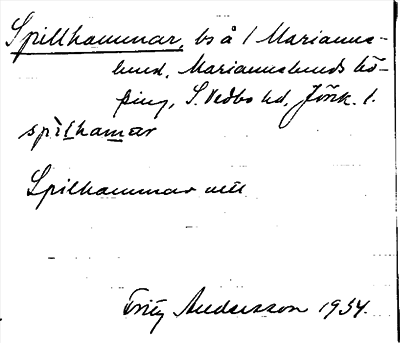 Spillhammar, bs å 1 Marianne-
lund, Mariannelunds kö-
ping, S. Vedbo hd, Jönk. l.
spìlhamar
Spilhammar
Fritz Andersson 1934.